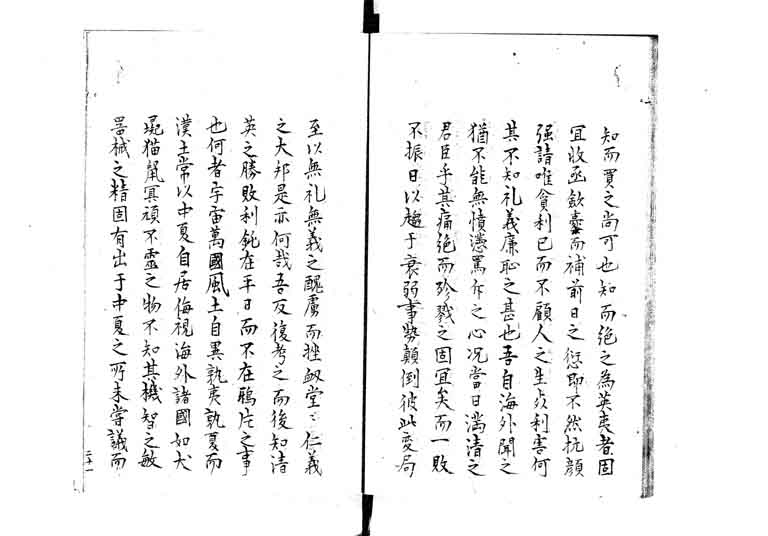 知而買之尚可也知而絶之為英夷者固
宜收函斂橐而補前日之愆即不然抗顔
强請唯貪利已而不顧人之生与利害何
其不知礼義廉恥之甚也吾自海外聞之
猶不能無憤懣罵作之心况當日満清之
君臣乎其痛絶而殄戮之固宜矣而一敗
不振日以趨于衰弱事勢顛倒彼此変局
至以無礼無義之醜虜而挫衂堂〻仁義
之大邦是亦何哉吾反復考之而後知清
英之勝敗利鈍在平日而不在鴉片之事
也何者宇宙萬國風土自異孰夷孰夏而
漢土常以中夏自居侮視海外諸國如犬
彘猫鼠冥頑不霊之物不知其機智之敏
器械之精固有出于中夏之所未嘗議而
二十一